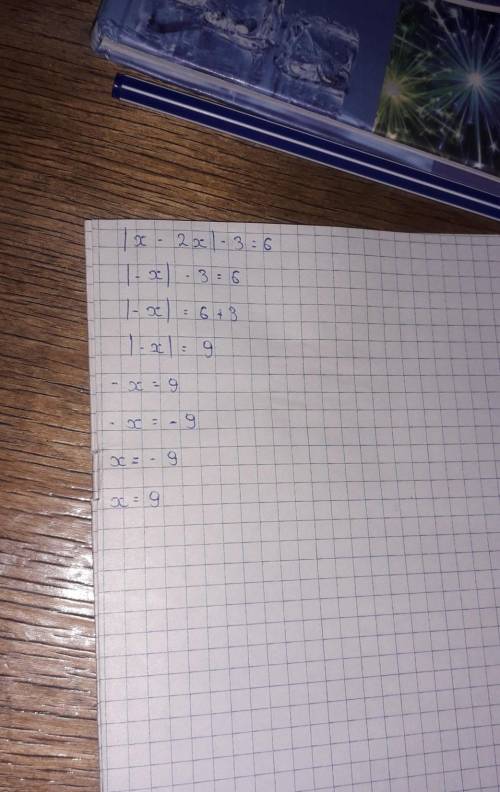 |x - 2x| - 3 = 6
|- x| - 3 = 6
|- x| = 6 + 3
|- x| = 9
- x = 9
- x = - 9
x = - 9
x = 9